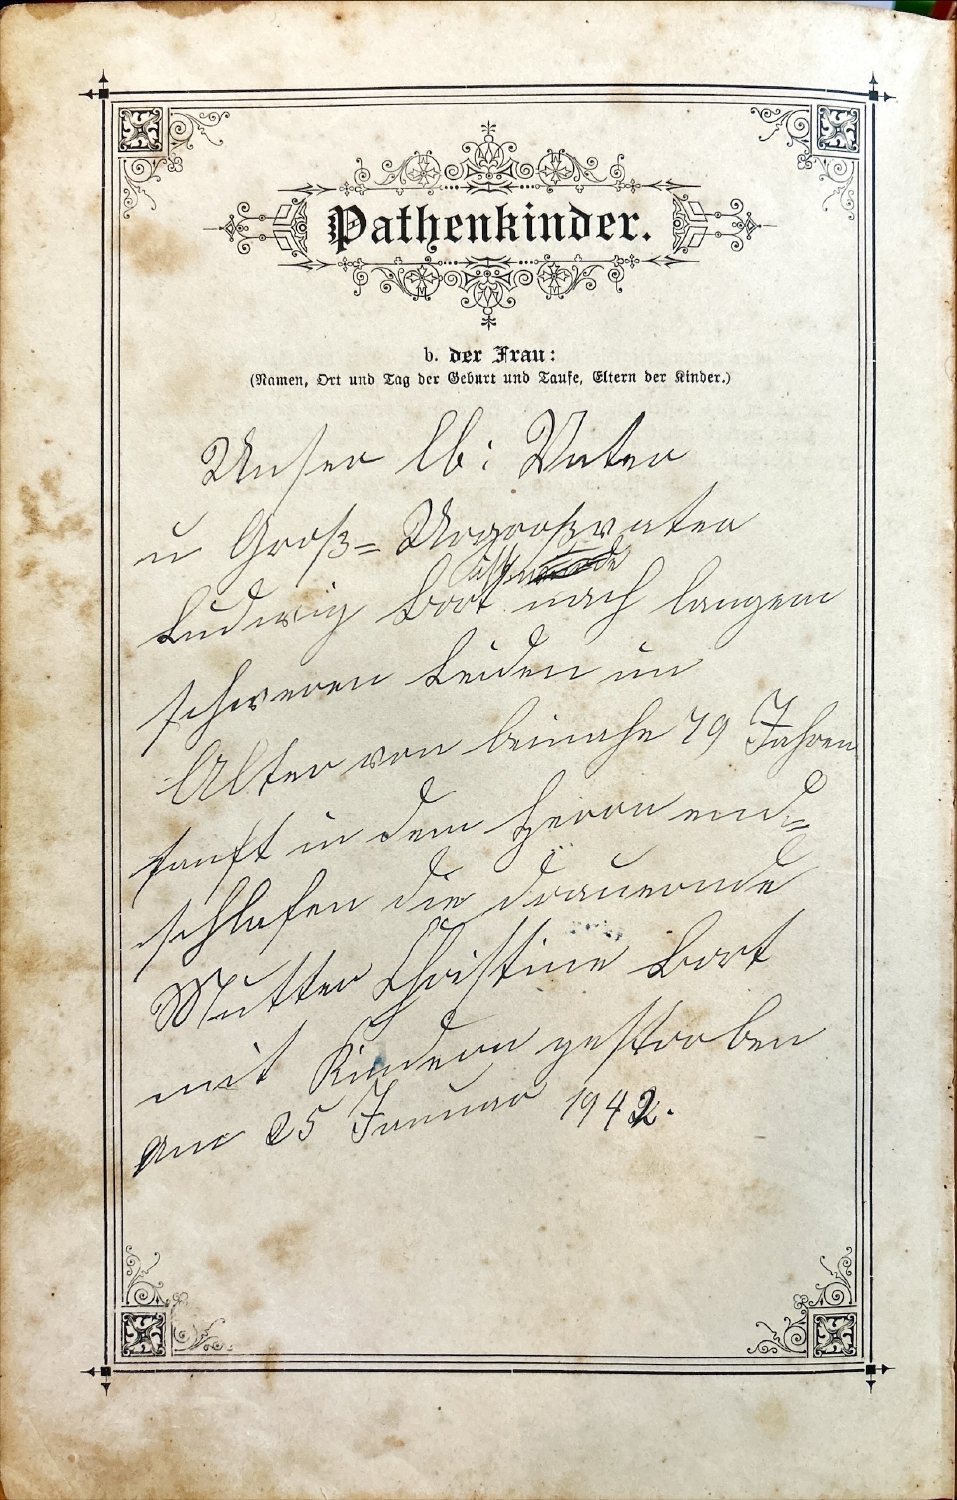 Pathenkinder.
b. der Frau:
(Namen, Ort und Tag der Geburt und Taufe, Eltern der Kinder.)
Unser lb: Vater
u Groß= Urgroßvater
Ludwig Bort nach langem
schweren Leiden im
Alter von beinahe 79 Jahren
sanft in dem Herrn end=
schlafen die drauernde
Mutter Christine Bort
mit Kindern gestorben
am 25 Januar 1942.